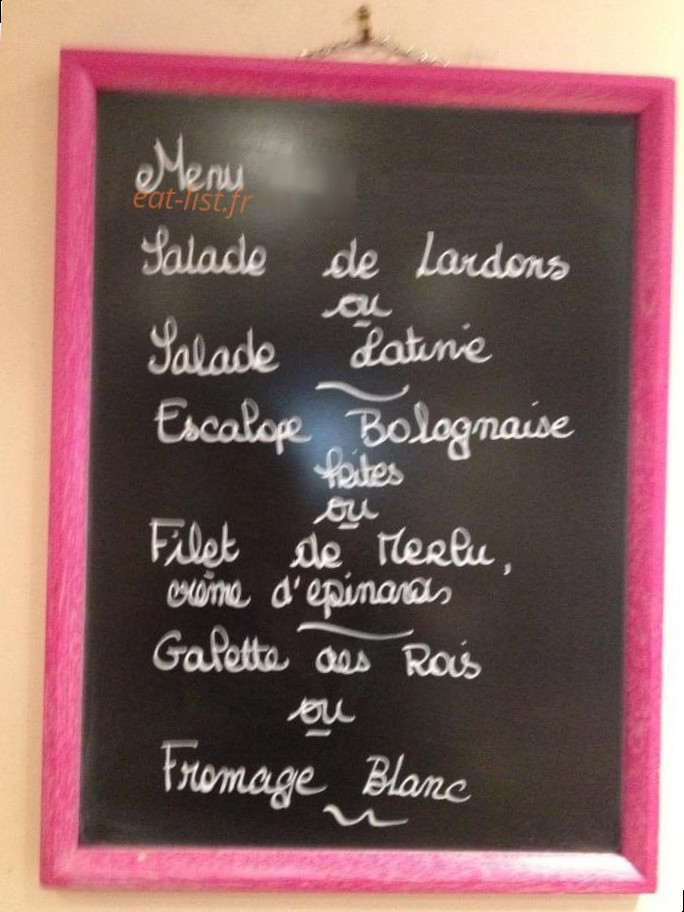 Menu
eat-list.fr
Salade de Lardons
ou
Salade Latine
Escalope Bolognaise
frites
ou
Filet de Merlu,
crème d'epinards
Galette des Rois
ou
Fromage Blanc